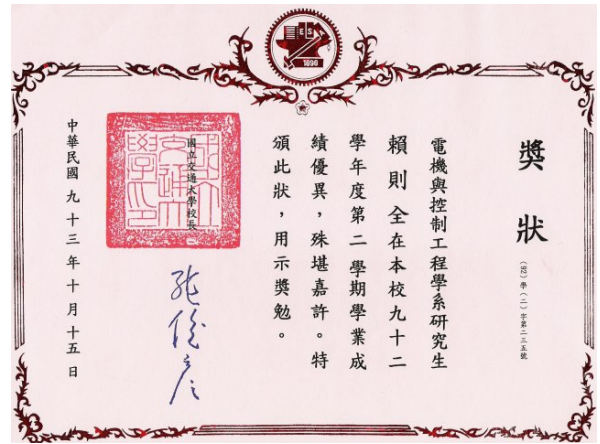 獎狀
(92)學(二)字第二三五號
電機與控制工程學系研究生
賴則全在本校九十二
學年度第二學期學業成
績優異，殊堪嘉許。特
頒此狀，用示獎勉。
國立交通大學校長
張俊彥
中華民國九十三年十月十五日
ES
1896